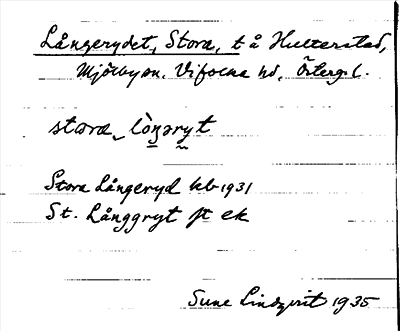 Långerydet, Stora, t å Hulterstad,
Mjölbyon. Vifolka hd, Östergl.
stora lòŋəryt
Stora Långeryd kb 1931
St. Långgryt jt ek
Sune Lindqvist 1935